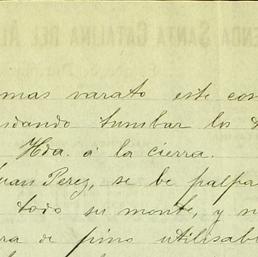 ENDA SANTA CATALINA DEL AL
mas varato este cos
idando tumbar los
Hda. á la cierra.
Juan Perez, se be palpa
todo su monte, y n
ra de pino utilisabl